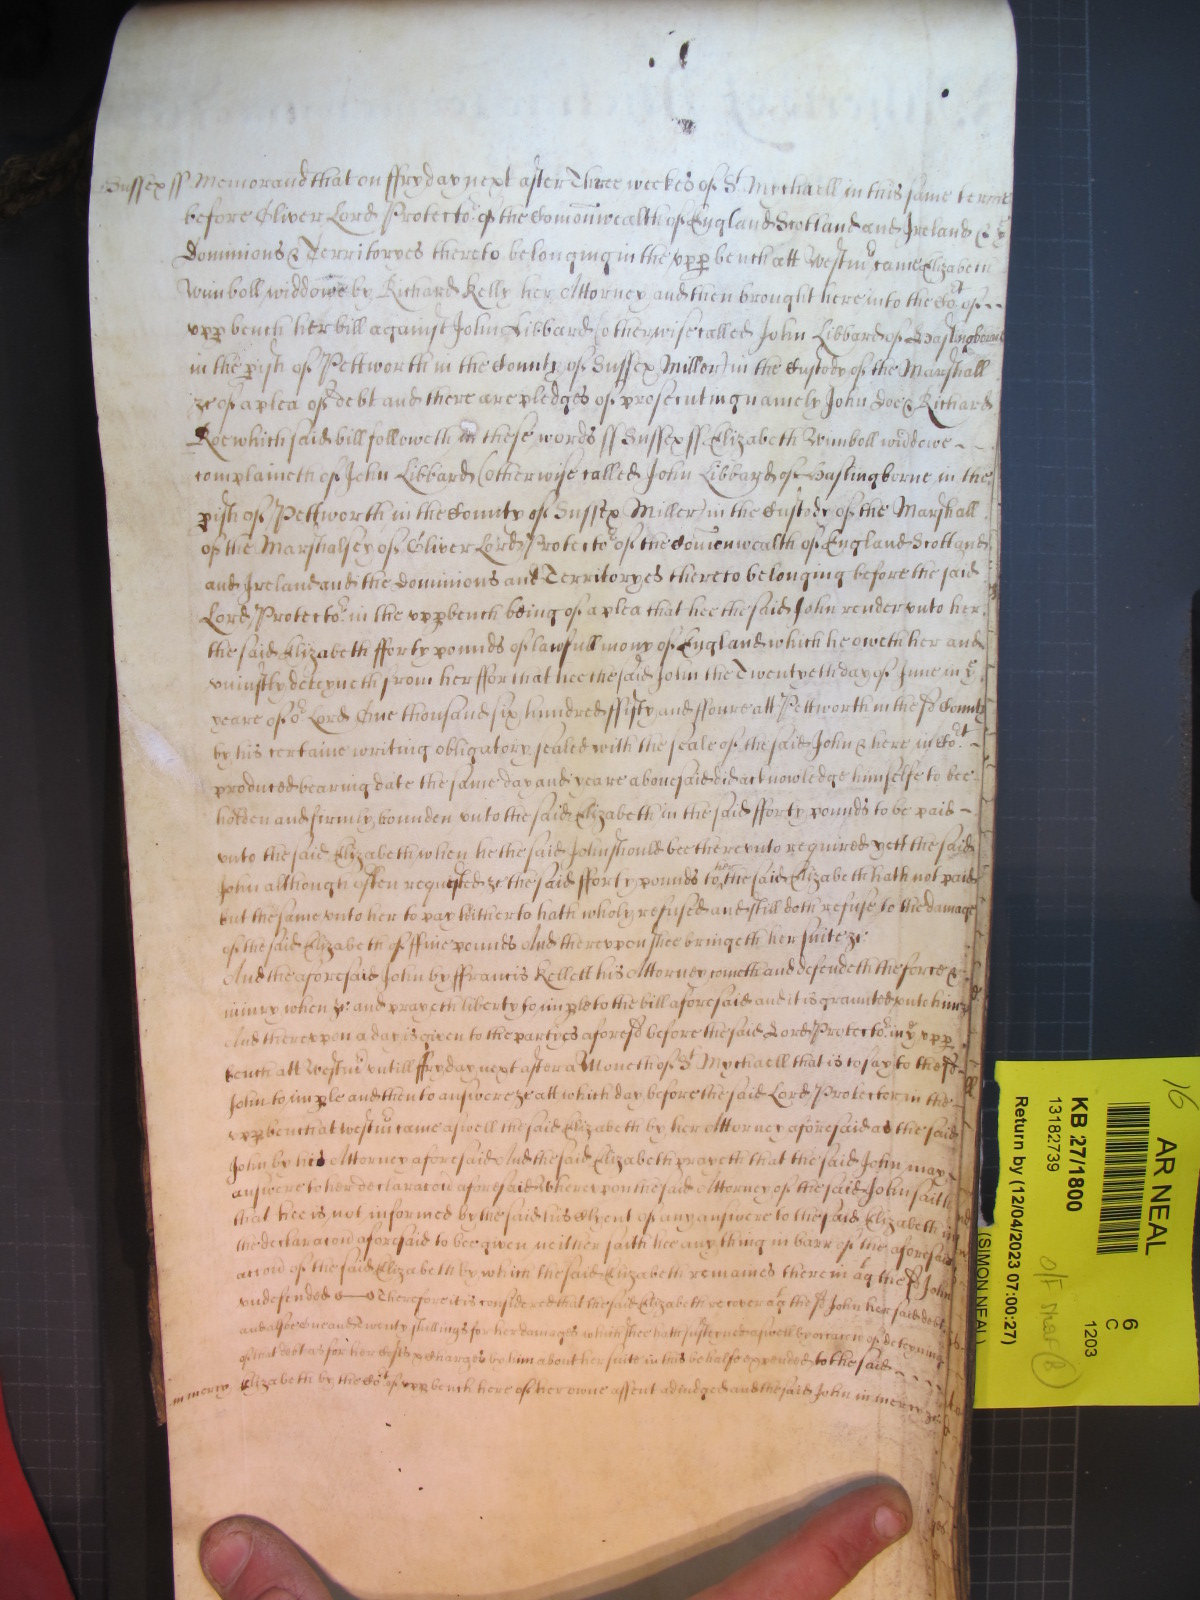 Sussex ss Memorand that on ffryday next after Three weekes of St Mychaell in this same terme
before Oliver Lord Protector of the Comonwealth of England Scotland and Ireland & ye
Dominions & Territoryes thereto belonging in the upp bench att Westmr came Elizabeth
Wimboll widdowe by Richard Kelly her Attorney and then brought here into the Cort of --
upp bench her bill against John Libbard (otherwise called John Libbard of Haslingborne
in the pish of Pettworth in the County of Sussex Miller) in the Custody of the Marshall
&c of a plea of debt and there are pledges of prosecuting namely John Doe & Richard
Roe which said bill followeth in these words ss Sussex ss Elizabeth Wimboll widdowe --
complaineth of John Libbard (otherwise called John Libbard of Haslingborne in the
pish of Pettworth in the County of Sussex Miller) in the Custody of the Marshall
of the Marshalsey of Oliver Lord Protector of the Comonwealth of England Scotland
and Ireland and the Dominions and Territoryes thereto belonging before the said
Lord Protector in the upp bench being of a plea that hee the said John render unto her
the said Elizabeth fforty pounds of lawfull mony of England which he oweth her and
uniustly deteyneth from her ffor that hee the said John the Twentyeth day of June in ye
yeare of or Lord One thousand six hundred ffifty and ffoure att Pettworth in the sd County
by his certaine writing obligatory sealed with the seale of the said John & here in Cort -
produced bearing date the same day and yeare abovesaid did acknowledge himselfe to bee
holden and firmly bounden unto the said Elizabeth in the said fforty pounds to be paid -
unto the said Elizabeth when he the said John should bee thereunto required yett the said
John although often requested &c the said fforty pounds to her the said Elizabeth hath not paid
but the same unto her to pay hitherto hath wholy refused and still doth refuse to the damage
of the said Elizabeth of ffive pounds And thereupon shee bringeth her suite &c
And the aforesaid John by ffrancis Kellett his Attorney cometh and defendeth the force &
iniury when &c and prayeth liberty to imple to the bill aforesaid and it is graunted unto him &c
And thereupon a day is given to the partyes aforesd before the said Lord Protector in ye upp
bench att Westmr untill ffryday next after a Moneth of St Mychaell that is to say to the sd
John to imple and then to answere &c att which day before the said Lord Protector in the -
upp bench at Westmr came aswell the said Elizabeth by her Attorney aforesaid as the said
John by his Attorney aforesaid And the said Elizabeth prayeth that the said John may
answere to her declaracon aforesaid Whereupon the said Attorney of the said John saith
that hee is not informed by the said his Clyent of any answere to the said Elizabeth in
the declaracon aforesaid to bee given neither saith hee any thing in barr of the aforesaid
accon of the said Elizabeth by which the said Elizabeth remaines therein agt the sd John
undefended Therefore it is considered that the said Elizabeth recover agt the sd John her said debt
and alsoe one and Twenty shillings for her damages which shee hath susteyned aswell by occasion of deteyning
of that debt as for her costs & charges by him about her suite in this behalfe expended to the said ----
Elizabeth by the Cort of upp bench here of her owne assent adiudged and the said John in mercy &c
in mercy
16
AR NEAL
6
C
1203
KB 27/1800
13182739
Return by (12/04/2023 07:00:27)
(SIMON NEAL)